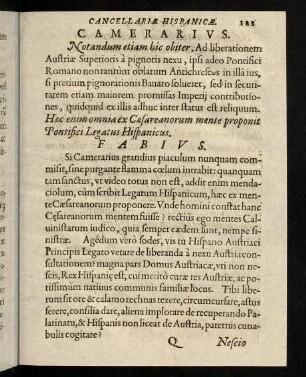 CANCELLARIÆ HISPANICÆ. 121
CAMERARIVS.
Notandum etiam hic obiter. Ad liberationem
Austriæ Superioris à pignotis nexu, ipsi adeo Pontifici
Romano non tantùm oblatum Antichreseωs in illâ ius,
si pretium pignorationis Bauaro solueret, sed in securi-
tatem etiam maiorem promissas Imperij contributio-
nes, quidquid ex illis adhuc inter status est reliquum.
Hæc enim omnia ex Cæsareanorum mente proponit
Pontifici Legatus Hispanicus.
FABIVS.
Si Camerarius grandius piaculum nunquam com-
misit, sine purgante flamma cœlum intrabit: quanquam
tam sanctus, vt video totus non est, addit enim menda-
ciolum, cùm scribit Legatum Hispanicum, hæc ex men-
te Cæsareanorum proponere. Vnde homini constat hanc
Cęsareanorum mentem fuisse? rectiùs ego mentes Cal-
uinistarum iudico, quia semper eædem sunt, nempe si-
nistræ. Agedum verò sodes, vis tu Hispano Austriaci
Principis Legato vetare de liberanda à nexu Austria con-
sultationem? magna pars Domus Austriacæ, vti non ne-
scis, Rex Hispanię est, cui meritò curæ res Austriæ, ac po-
tissimùm natiuus communis familiæ locus. Tibi libe-
rum sit ore & calamo technas texere, circumcursare, astus
serere, consilia dare, aliena implorare de recuperando Pa-
latinatu, & Hispanis non liceat de Austria, paternis cuna-
bulis cogitare?
Q Nescio